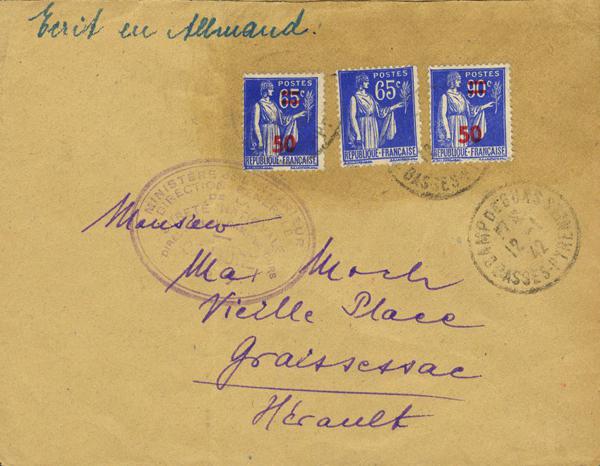 Ecrit en Allemand.
POSTES 65 50 RÉPUBLIQUE-FRANÇAISE
POSTES 65c RÉPUBLIQUE-FRANÇAISE
POSTES 90c 50 RÉPUBLIQUE-FRANÇAISE
BASSES-P
MINISTÈRE
DIRECTION
DE
CAMP DE GURS
12 -1
42
BASSES-PYR
Monsieur
Max Moch
Vieille Place
Graissessac
Hérault